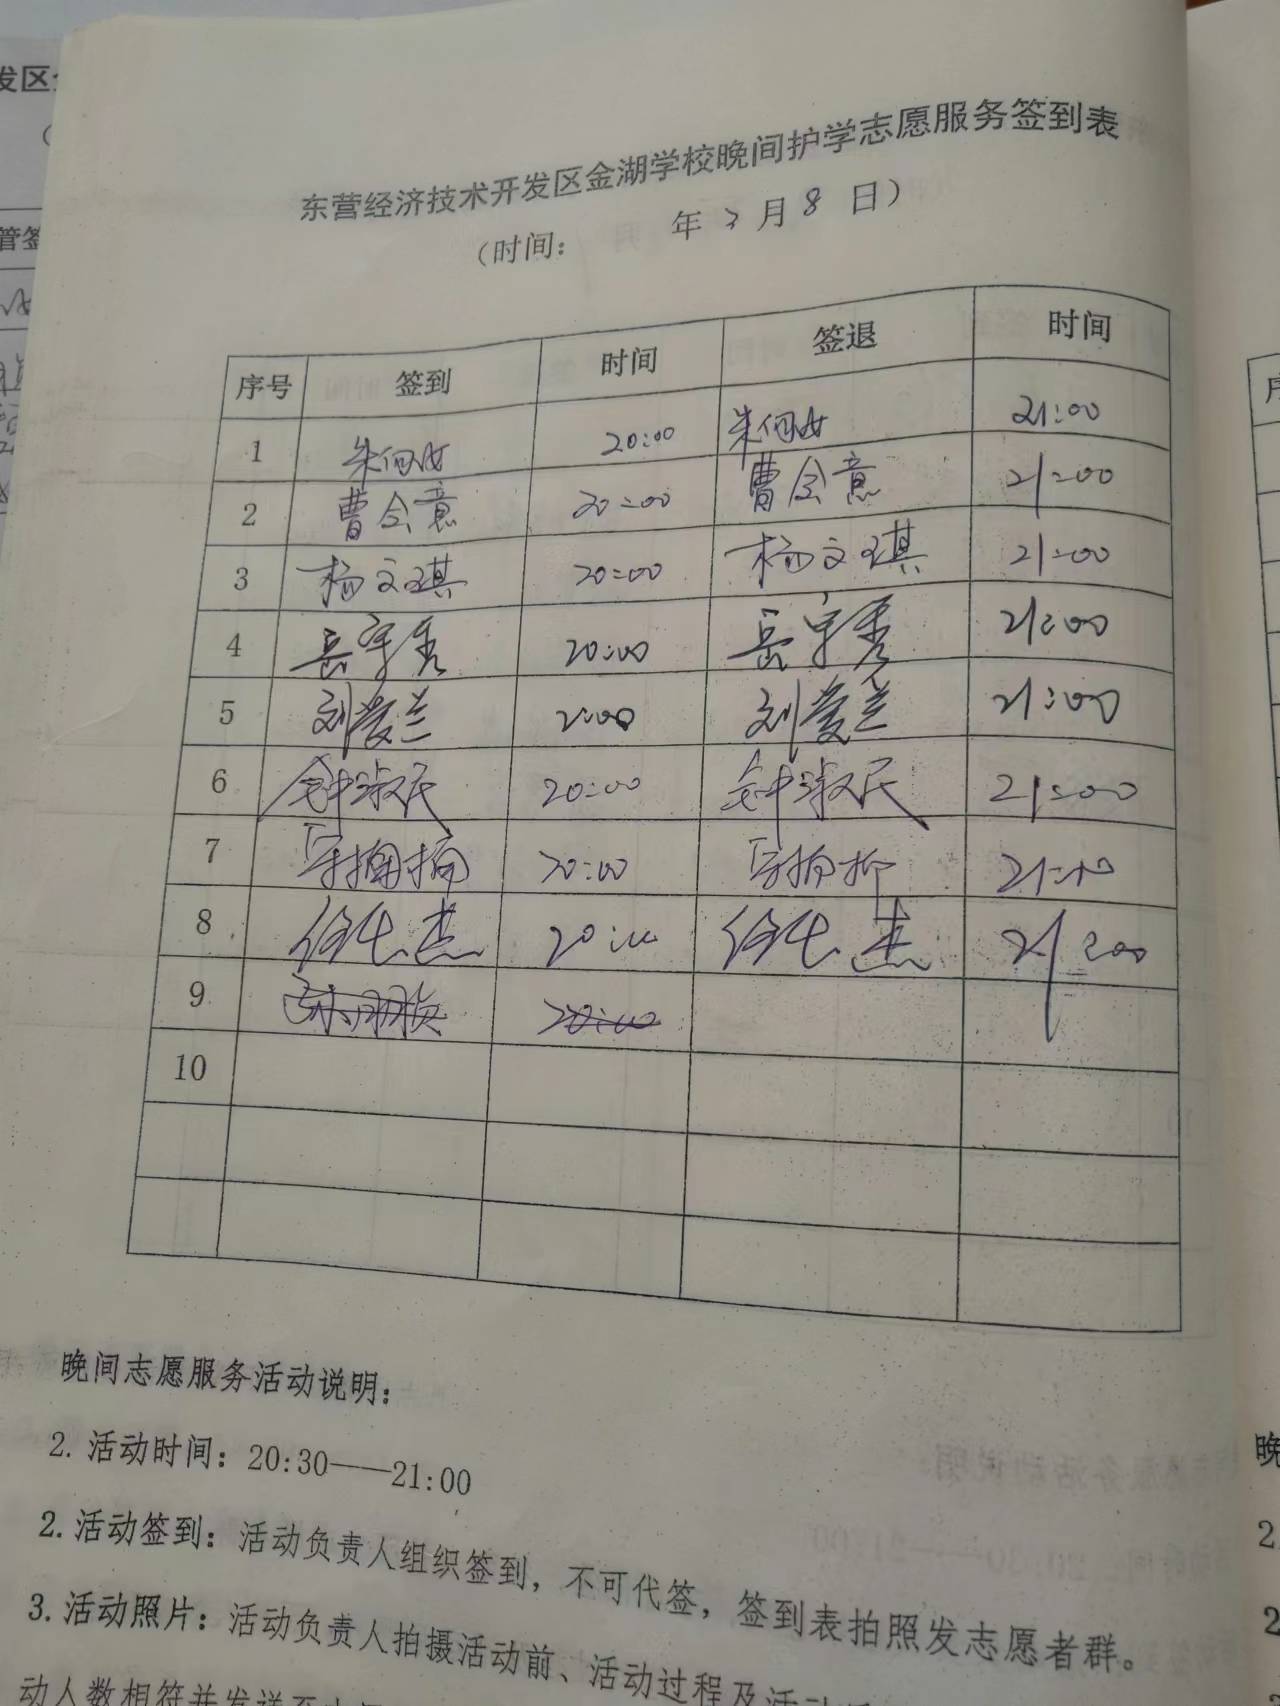 发区
管签
东营经济技术开发区金湖学校晚间护学志愿服务签到表
（时间： 年 3 月 8 日）
序号 签到 时间 签退 时间
1 20:00 21:00
2 曹会意 20:00 曹会意 21:00
3 杨文琪 20:00 杨文琪 21:00
4 岳宇秀 20:00 岳宇秀 21:00
5 刘爱兰 2:00 刘爱兰 21:00
6 钟淑民 20:00 钟淑民 21:00
7 20:00
8 任长杰 20:00 任长杰 21:00
9 20:00
10
晚间志愿服务活动说明：
2. 活动时间：20:30——21:00
2. 活动签到：活动负责人组织签到，不可代签，签到表拍照发志愿者群。
3. 活动照片：活动负责人拍摄活动前、活动过程及活动
动人数相符并发送至
晚
2
2